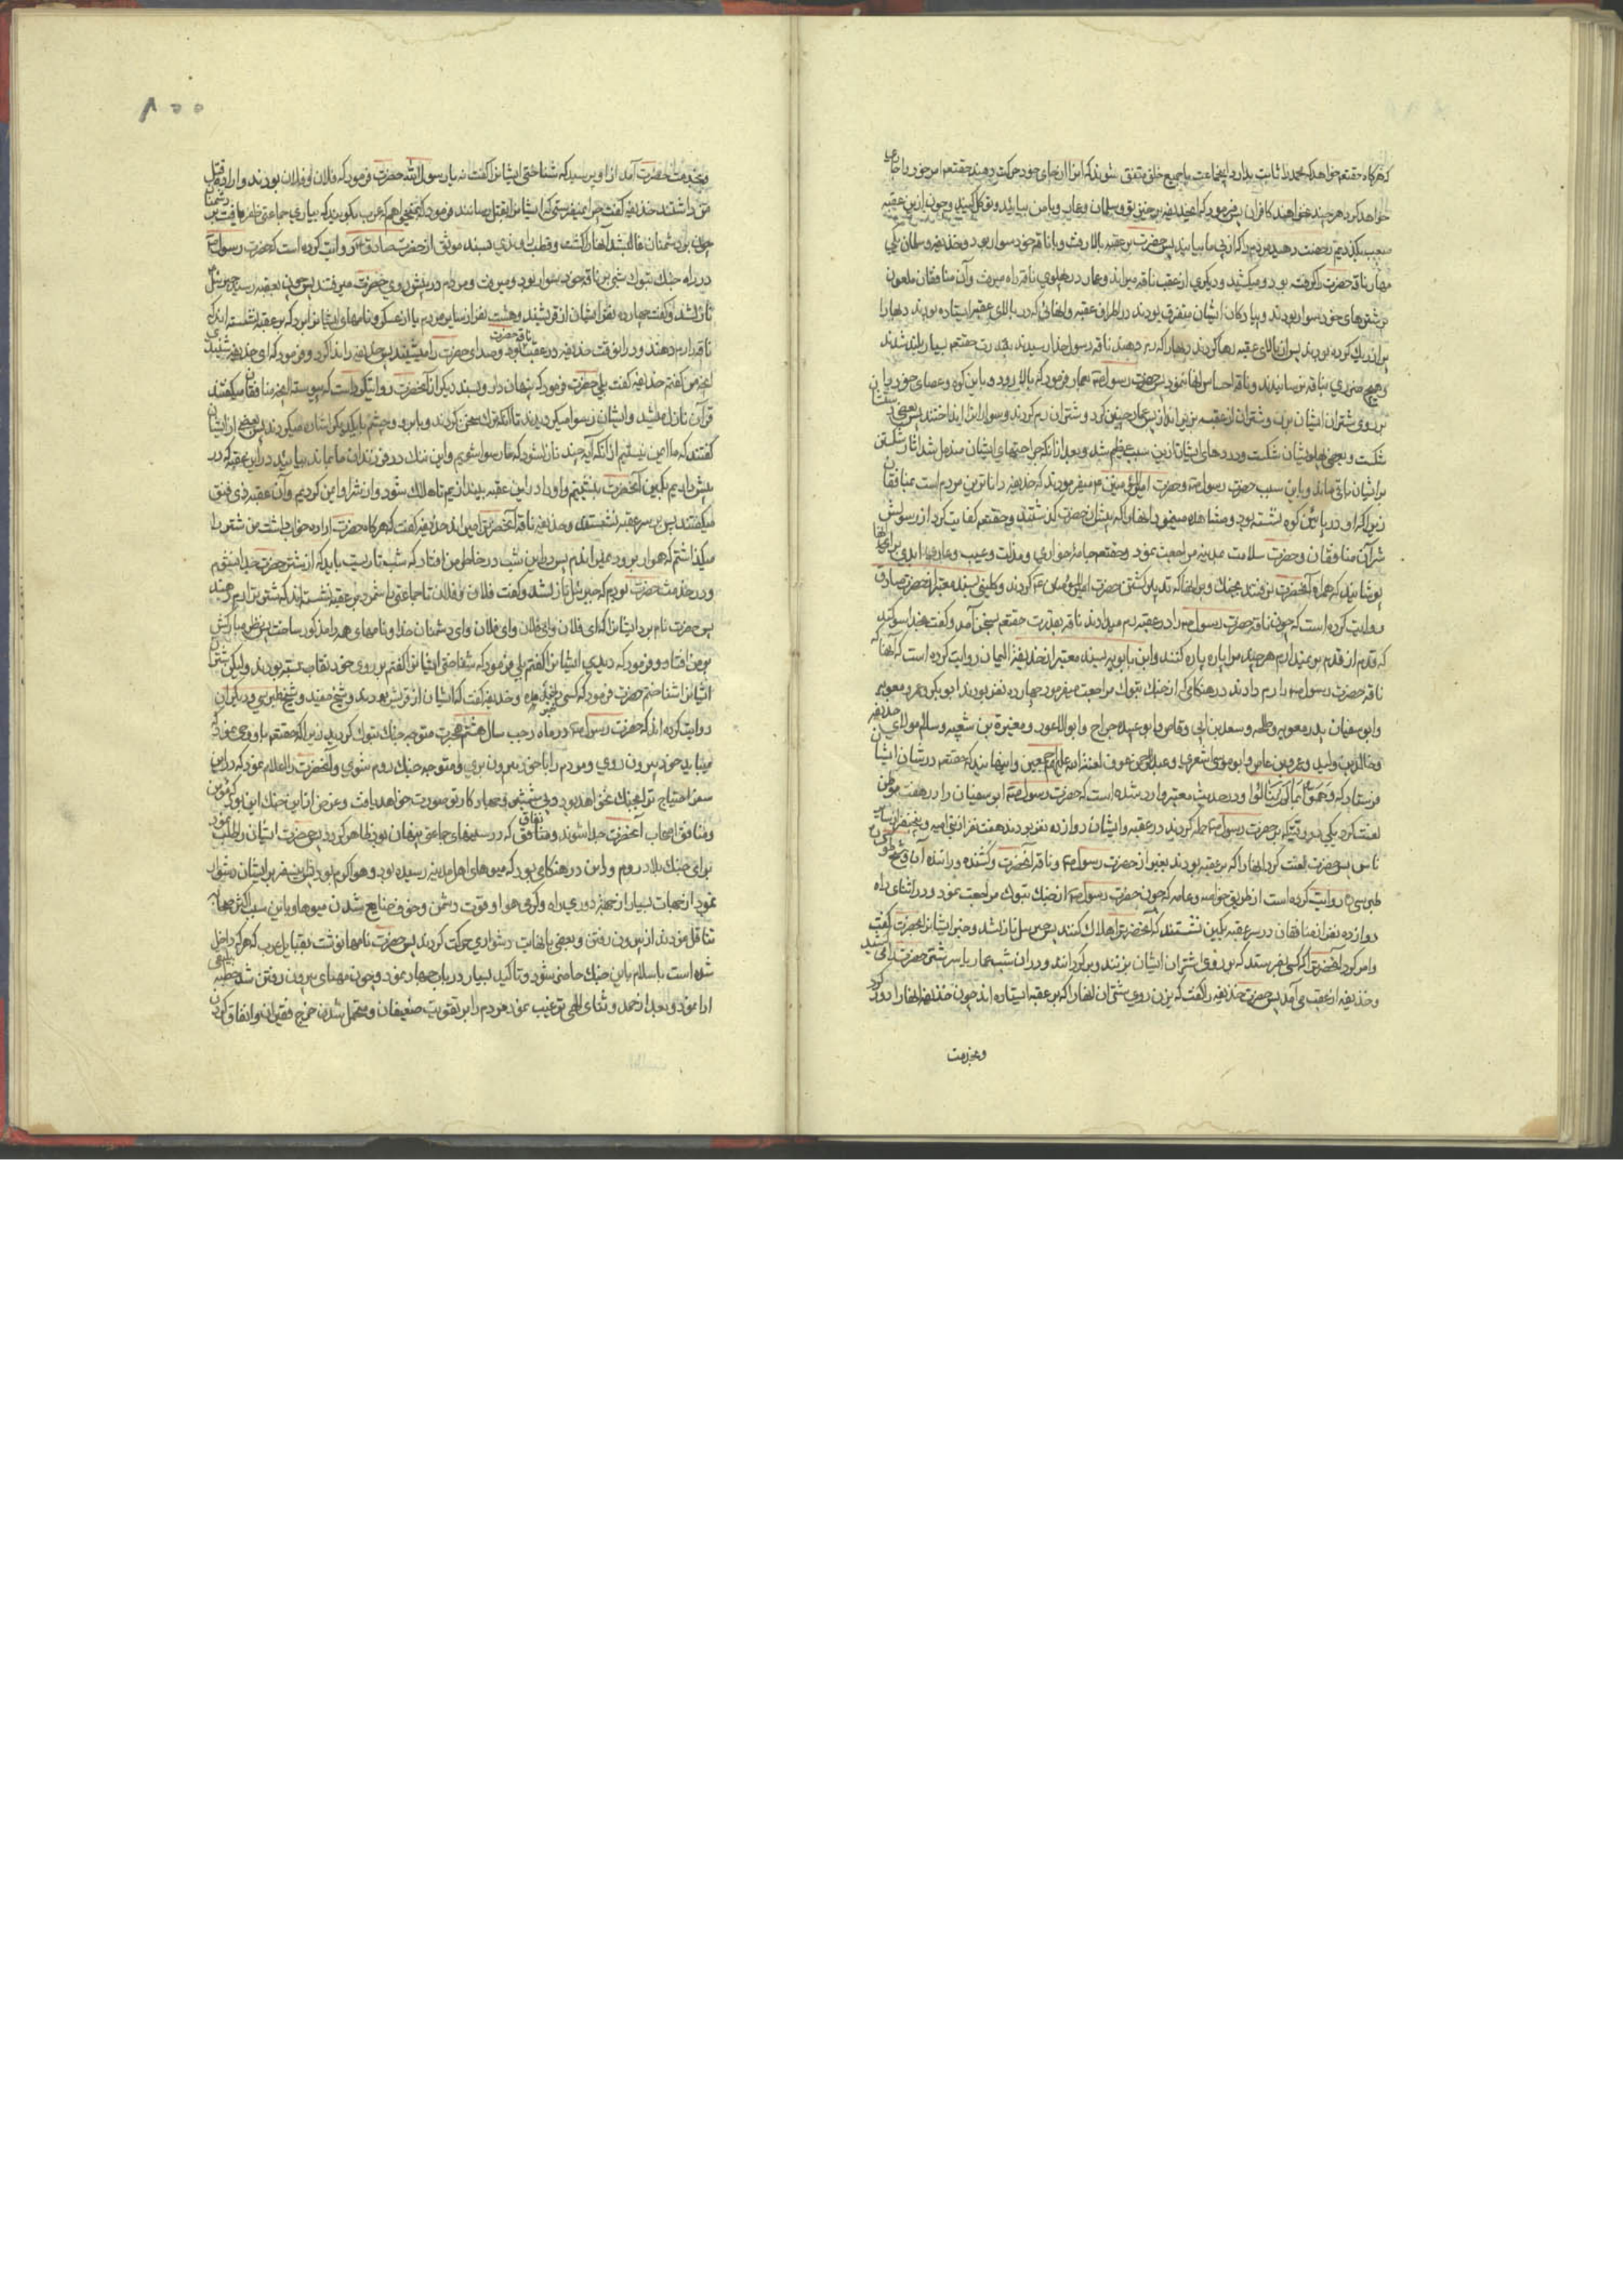 که هرگاه حقتعم خواهد که محمد را ثابت بدارد اینجماعت با جمیع خلق متفق شوند که او را از جای خود حرکت دهند حقتعم امر خود را جاری
خواهد کرد هر چند نخواهند کافران پس فرمود که ای حذیفه برخیز تو و سلمان و عمار و با من بیایید و توکل کنید و چون از این عقبه
صعب بگذریم رخصت دهید مردم را که از پی ما بیایند پس حضرت بر عقبه بالا رفت و با ناقه خود سوار بود و حذیفه و سلمان یکی
مهار ناقه حضرت را گرفته بود و میکشید و دیگری از عقب ناقه میراند و عمار در پهلوی ناقه راه میرفت و آن منافقان ملعون
بر شترهای خود سوار بودند و پیادگان ایشان متفرق بودند در اطراف عقبه و آنهائی که در بالای عقبه ایستاده بودند دبها را
پر از ریگ کرده بودند پس از بالای عقبه رها کردند دبها را که رم دهند ناقه رسول خدا رسیدند بقدرت حقتعم بسیار بلند شدند
و هیچ ضرری بناقه نرسانیدند و ناقه احساس آنها ننمود پس حضرت رسول ص بعمار فرمود که بالا رود و باین کوه و عصای خود را
بر روی شتران ایشان بزن و شتران از عقبه بزیر انداز پس عمار چنین کرد و شتران رم کردند و سواران را انداختند پس بعضی را
شکست و بعضی را پایشان شکست و دردهای ایشان از این سبب عظیم شد و بعد از آنکه جراحتهای ایشان مندمل شد آثار شکستن
بر ایشان باقی ماند و باین سبب حضرت رسول ص و حضرت امیرالمؤمنین ع میفرمودند که حذیفه داناترین مردم است بمنافقان
زیرا که او در پائین کوه نشسته بود و مشاهده مینمود آنها را که پیش از حضرت گذشتند و حقتعم کفایت کرد از رسولش
شر آن منافقان و حضرت سلامت بمدینه مراجعت نمود و حقتعم جامهٔ خواری و مذلت و عیب و عار ابدی برای آنها
پوشانید که همراه آنحضرت نرفتند بجنک و بر آنها که تدبیر کشتن حضرت امیرالمؤمنین ع کردند و کلینی بسند معتبر از حضرت صادق
روایت کرده است که چون ناقه حضرت رسول ص را در عقبه رم میدادند ناقه بقدرت حقتعم بسخن آمد و گفت بخدا سوگند
که قدم از قدم بر نمیدارم هر چند مرا پاره پاره کنند و ابن بابویه بسند معتبر از حذیفة الیمان روایت کرده است که آنها که
ناقه حضرت رسول ص را رم دادند در هنگامی که از جنک تبوک مراجعت میفرمود چهارده نفر بودند ابوبکر و عمر و معویه
و ابوسفیان پدر معویه و طلحه و سعد بن ابی وقاص و ابوعبیده جراح و ابوالاعور و مغیرة بن شعبه و سالم مولای حذیفه
و خالد بن ولید و عمرو بن عاص و ابوموسی اشعری و عبدالرحمن عوف لعنة الله علیهم اجمعین و اینهایند که حقتعم در شان ایشان
فرستاد که وَهَمُّوا بِمَا لَمْ یَنَالُوا و در حدیث معتبر وارد شده است که حضرت رسول ص ابوسفیان را در هفت موطن
لعنت کرد یکی در وقتی که بر حضرت رسول ص حمله کردند در عقبه و ایشان دوازده نفر بودند هفت نفر از بنی امیه و پنج نفر از سایر
ناس پس حضرت لعنت کرد آنها را که بر عقبه بودند بغیر از حضرت رسول ص و ناقه آنحضرت و کشنده و راننده آن و شیخ
طبرسی ره روایت کرده است از طریق خاصه و عامه که چون حضرت رسول ص از جنک تبوک مراجعت نمود و در اثنای راه
دوازده نفر از منافقان در سر عقبه بکمین نشستند که آنحضرت را هلاک کنند پس جبرئیل نازل شد و خبر ایشان را بحضرت گفت
و امر کرد آنحضرت را که کسی بفرستد که بر روی اشتران ایشان بزنند و برگردانند و در آن شب عمار یاسر شتر حضرت را میکشید
و حذیفه از عقب می آمد پس حضرت حذیفه را گفت که بزن روی شتران آنها را که بر عقبه ایستاده اند چون حذیفه آنها را دور کرد
و بخدمت
۸۵۵
و بخدمت حضرت آمد از او پرسید که شناختی ایشان را گفت نه یا رسول الله حضرت فرمود که فلان و فلان بودند و اراده قتل
من داشتند حذیفه گفت چرا نمیفرستی که ایشان را بقتل رسانند فرمود که نمیخواهم که عرب بگویند که بیاری جماعتی ظفر یافت
چون بر دشمنان غالب شد آنها را کشت و قطب راوندی بسند موثق از حضرت صادق ع روایت کرده است که حضرت رسول ص
در راه جنک تبوک شبی بر ناقه خود سوار بود و میرفت و مردم در پیش روی حضرت میرفتند پس چون بعقبه رسید جبرئیل
نازل شد و گفت چهارده نفر ایشان از قریشند و هشت نفر از سایر مردم یا از عکس و نامهای ایشان را برد که بر عقبه نشسته اند که
ناقه را رم دهند و در آنوقت حذیفه در عقب ناقه حضرت بود و صدای حضرت را میشنید پس حذیفه را ندا کرد و فرمود که ای حذیفه شنیدی
آنچه من گفتم حذیفه گفت بلی حضرت فرمود که پنهان دار و بسند دیگر از آنحضرت روایت کرده است که پیوسته آنچه منافقان میگفتند
قرآن نازل میشد و ایشان رسوا میگردیدند تا آنکه ترک سخن کردند و بابرو و چشم با یکدیگر اشاره میکردند پس بعضی از ایشان
گفتند که ما ایمن نیستیم از آنکه آیه چند نازل شود که ما رسوا شویم و این ننک در فرزندان ما بماند بیایید در این عقبه که در
پیش داریم بکمین آنحضرت بنشینیم و او را در این عقبه بیندازیم تا هلاک شود و از شر او ایمن گردیم و آن عقبه ذی فتق
میگفتند پس بر سر عقبه نشستند و حذیفه ناقه آنحضرت را میراند حذیفه گفت که هرگاه حضرت اراده خواب داشت من شتر را
میگذاشتم که هموار برود نمیراندم پس در این شب در خاطر من افتاد که شب تاریست باید که از شتر حضرت جدا نشوم
و در خدمت حضرت بودم که جبرئیل نازل شد و گفت فلان و فلان تا جماعتی را شمرد بر عقبه نشسته اند که شتر ترا رم دهند
پس حضرت نام برد ایشان را که ای فلان و ای فلان و ای فلان و ای دشمنان خدا و نامهای همه را مذکور ساخت پس نظر مبارکش
بر من افتاد و فرمود که دیدی ایشان را گفتم بلی فرمود که شناختی ایشان را گفتم بر روی خود نقاب بسته بودند ولیکن شتران
ایشان را شناختم حضرت فرمود که کسی را خبر مده و حذیفه گفت که ایشان از قریش بودند و شیخ مفید و شیخ طبرسی و دیگران
روایت کرده اند که حضرت رسول ص در ماه رجب سال هشتم هجرت متوجه جنک تبوک گردید زیرا که حقتعم باو وحی نمود که
میباید خود بیرون روی و مردم را با خود بیرون بری و متوجه جنک روم شوی و آنحضرت را اعلام نمود که در این
سفر احتیاج تو بجنک نخواهد بود و بی شمشیر و جهاد کار تو صورت خواهد یافت و غرض از این جنک این بود که مؤمن
و منافق اصحاب آنحضرت جدا شوند و نفاق که در سینهای جماعتی پنهان بود ظاهر گردد پس حضرت ایشان را طلب نمود
برای جنک بلاد روم و این در هنگامی بود که میوهای اهل مدینه رسیده بود و هوا گرم بود و این سفر بر ایشان دشوار
نمود از جهات بسیار از جهة دوری راه و گرمی هوا و قوت دشمن و خوف ضایع شدن میوها و باین سبب اکثر صحابه
تثاقل نمودند از بیرون رفتن و بعضی با نهایت دشواری حرکت کردند پس حضرت نامها نوشت بقبایل عرب که هر که داخل
شده است باسلام باین جنک حاضر شود و تاکید بسیار در باب جهاد نمود و چون مهیای بیرون رفتن شد خطبه بلیغی
ادا نمود و بعد از حمد و ثنای الهی ترغیب نمود مردم را بر تقویت ضعیفان و متحمل شدن خرج فقیران و انفاق کردن